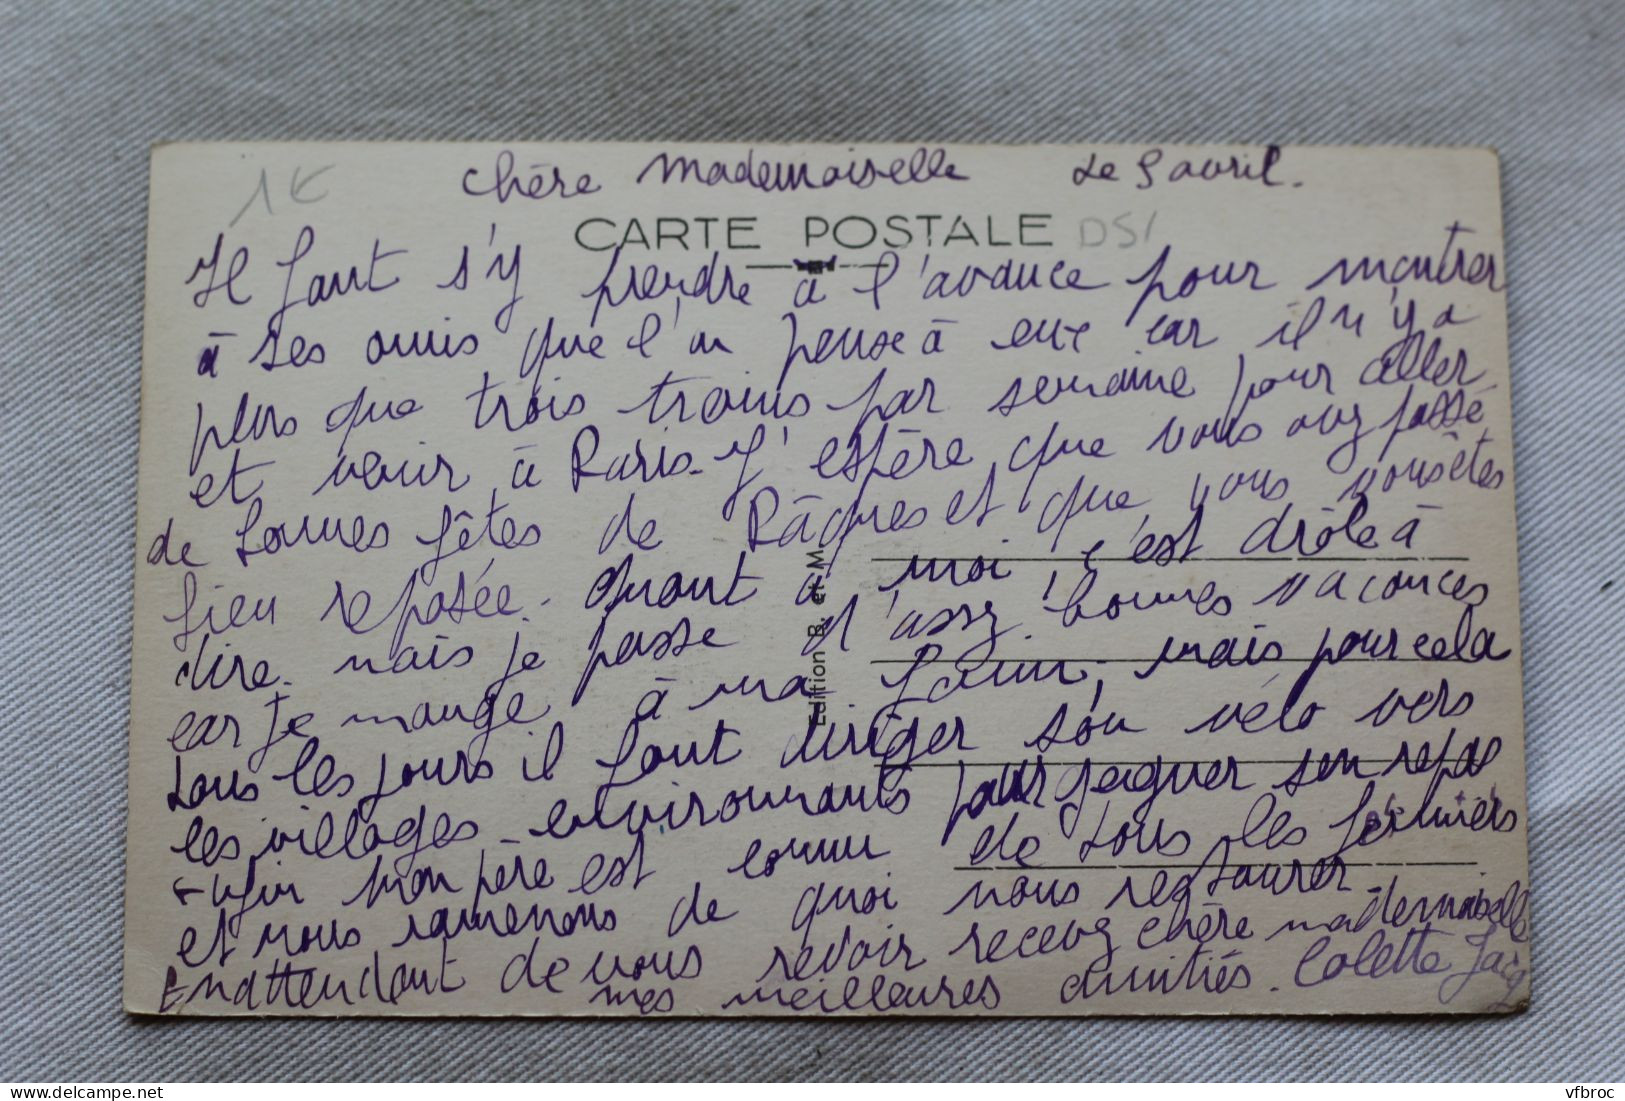 1€
chère Mademoiselle Le 9 avril.
CARTE POSTALE DS1
Il faut s'y prendre à l'avance pour montrer
à ses amis que l'on pense à eux car il n'y a
plus que trois trains par semaine pour aller
et venir à Paris. J'espère que vous avez passé
de bonnes fêtes de Pâques et que vous vous êtes
bien reposée. Quant à moi, c'est drôle à
dire mais je passe d'assez bonnes vacances
car je mange à ma faim, mais pour cela
tous les jours il faut diriger son vélo vers
les villages environnants pour gagner son repas
enfin mon père est connu de tous les fermiers
et nous ramenons de quoi nous restaurer
En attendant de vous revoir recevez chère mademoiselle
mes meilleures amitiés. Colette Jacq
Edition B. et M.
delcampe.net
vfbroc